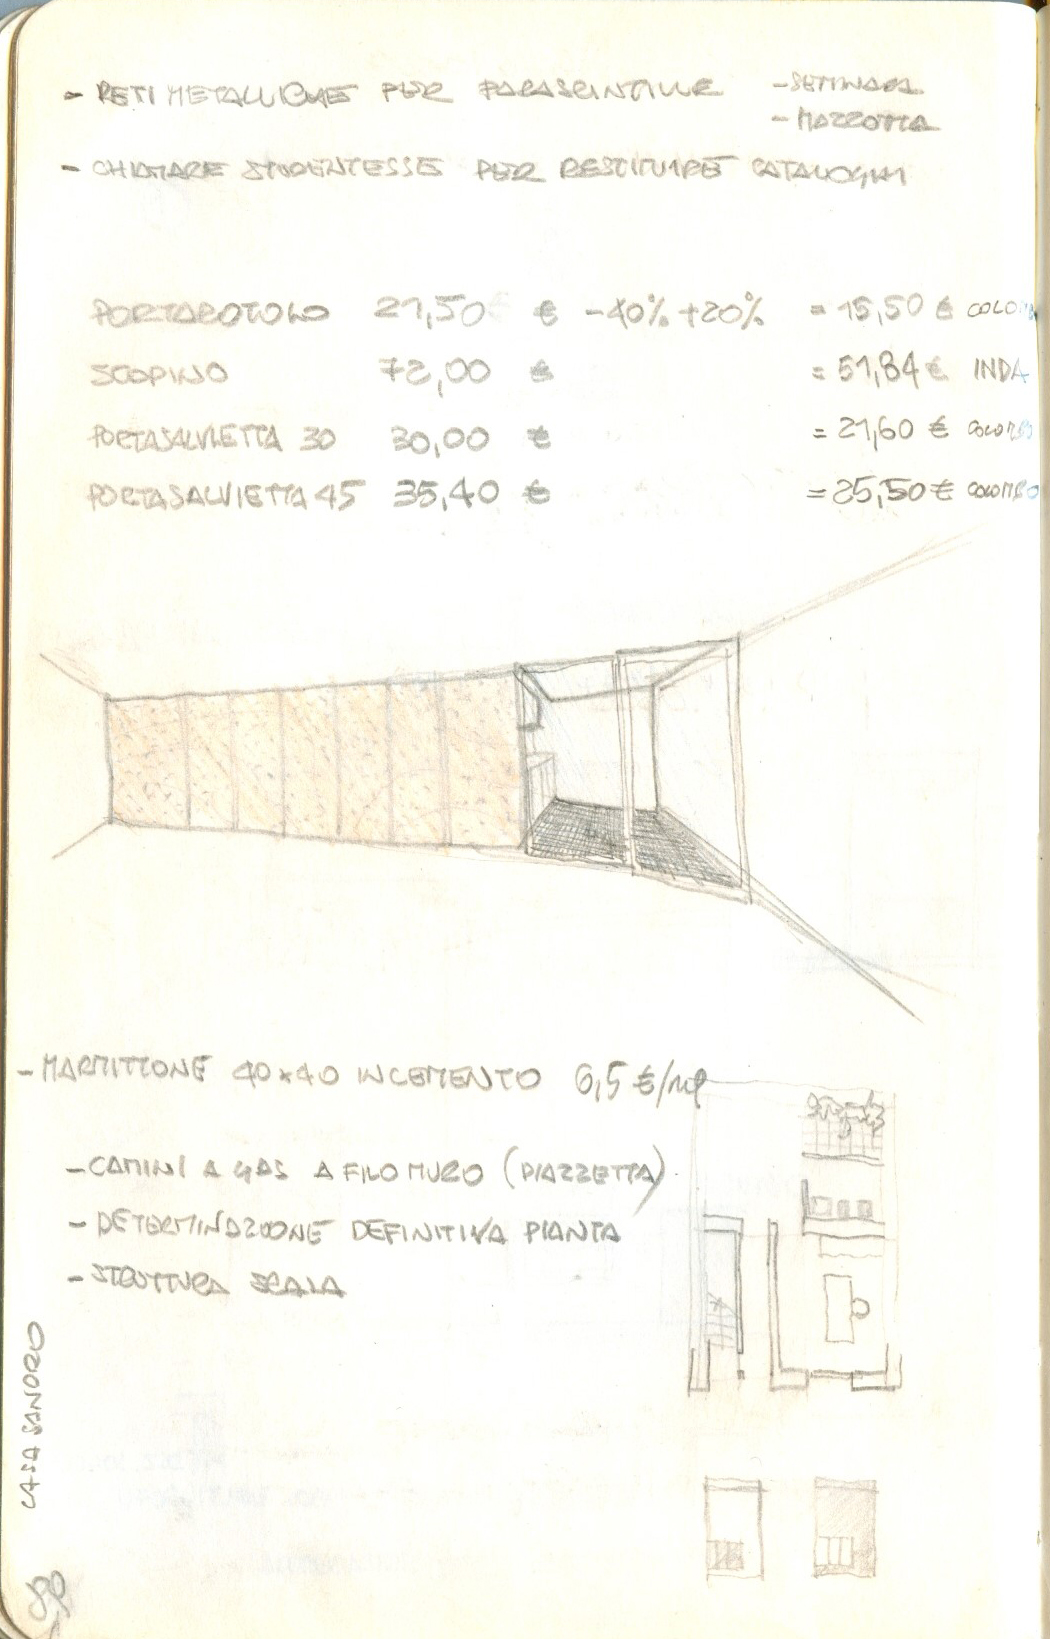 - RETI METALLICHE PER PARASCINTILLE
- SETTINARA
- MAZZOTTA
- CHIAMARE STUDENTESSE PER RESTITUIRE CATALOGHI
PORTAROTOLO 21,50 € -40% +20% = 15,50 € COLOMBO
SCOPINO 72,00 € = 51,84 € INDA
PORTASALVIETTA 30 30,00 € = 21,60 € COLOMBO
PORTASALVIETTA 45 35,40 € = 25,50 € COLOMBO
- MARMITTONE 40x40 INCREMENTO 6,5 €/mq
- CAMINI A GAS A FILO MURO (PIAZZETTA)
- DETERMINAZIONE DEFINITIVA PIANTA
- STRUTTURA SCALA
CASA SANDRO